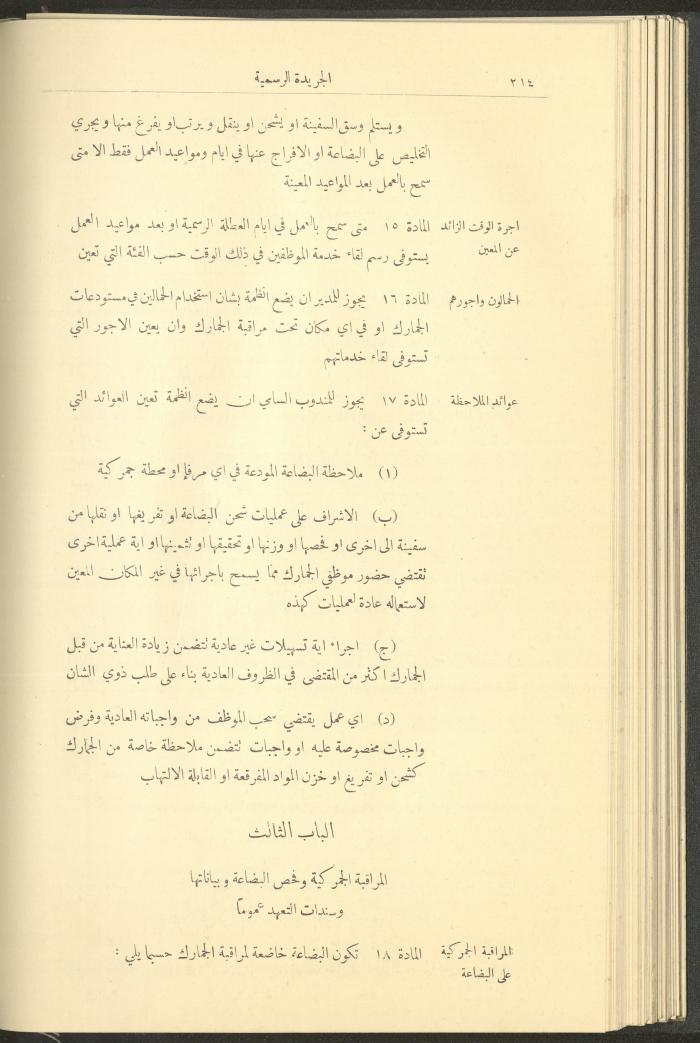 ٢١٤
الجريدة الرسمية
ويستلم وسق السفينة او يشحن او ينقل ويرتب او يفرغ منها ويجري
التخليص على البضاعة او الافراج عنها في ايام ومواعيد العمل فقط الا متى
سمح بالعمل بعد المواعيد المعينة
اجرة الوقت الزائد
عن المعين
المادة ١٥ متى سمح بالعمل في ايام العطلة الرسمية او بعد مواعيد العمل
يستوفى رسم لقاء خدمة الموظفين في ذلك الوقت حسب الفئة التي تعين
الحمالون واجورهم
المادة ١٦ يجوز للمدير ان يضع انظمة بشان استخدام الحمالين في مستودعات
الجمارك او في اي مكان تحت مراقبة الجمارك وان يعين الاجور التي
تستوفى لقاء خدماتهم
عوائد الملاحظة
المادة ١٧ يجوز للمندوب السامي ان يضع انظمة تعين العوائد التي
تستوفى عن :
(١) ملاحظة البضاعة المودعة في اي مرفإ او محطة جمركية
(ب) الاشراف على عمليات شحن البضاعة او تفريغها او نقلها من
سفينة الى اخرى او فحصها او وزنها او تحقيقها او تثمينها او اية عملية اخرى
تقتضي حضور موظفي الجمارك مما يسمح باجرائها في غير المكان المعين
لاستعماله عادة لعمليات كهذه
(ج) اجراء اية تسهيلات غير عادية تتضمن زيادة العناية من قبل
الجمارك اكثر من المقتضى في الظروف العادية بناء على طلب ذوي الشان
(د) اي عمل يقتضي سحب الموظف من واجباته العادية وفرض
واجبات مخصوصة عليه او واجبات تتضمن ملاحظة خاصة من الجمارك
كشحن او تفريغ او خزن المواد المفرقعة او القابلة الالتهاب
الباب الثالث
المراقبة الجمركية وفحص البضاعة وبياناتها
وسندات التعهد عموماً
المراقبة الجمركية
على البضاعة
المادة ١٨ تكون البضاعة خاضعة لمراقبة الجمارك حسبما يلي :